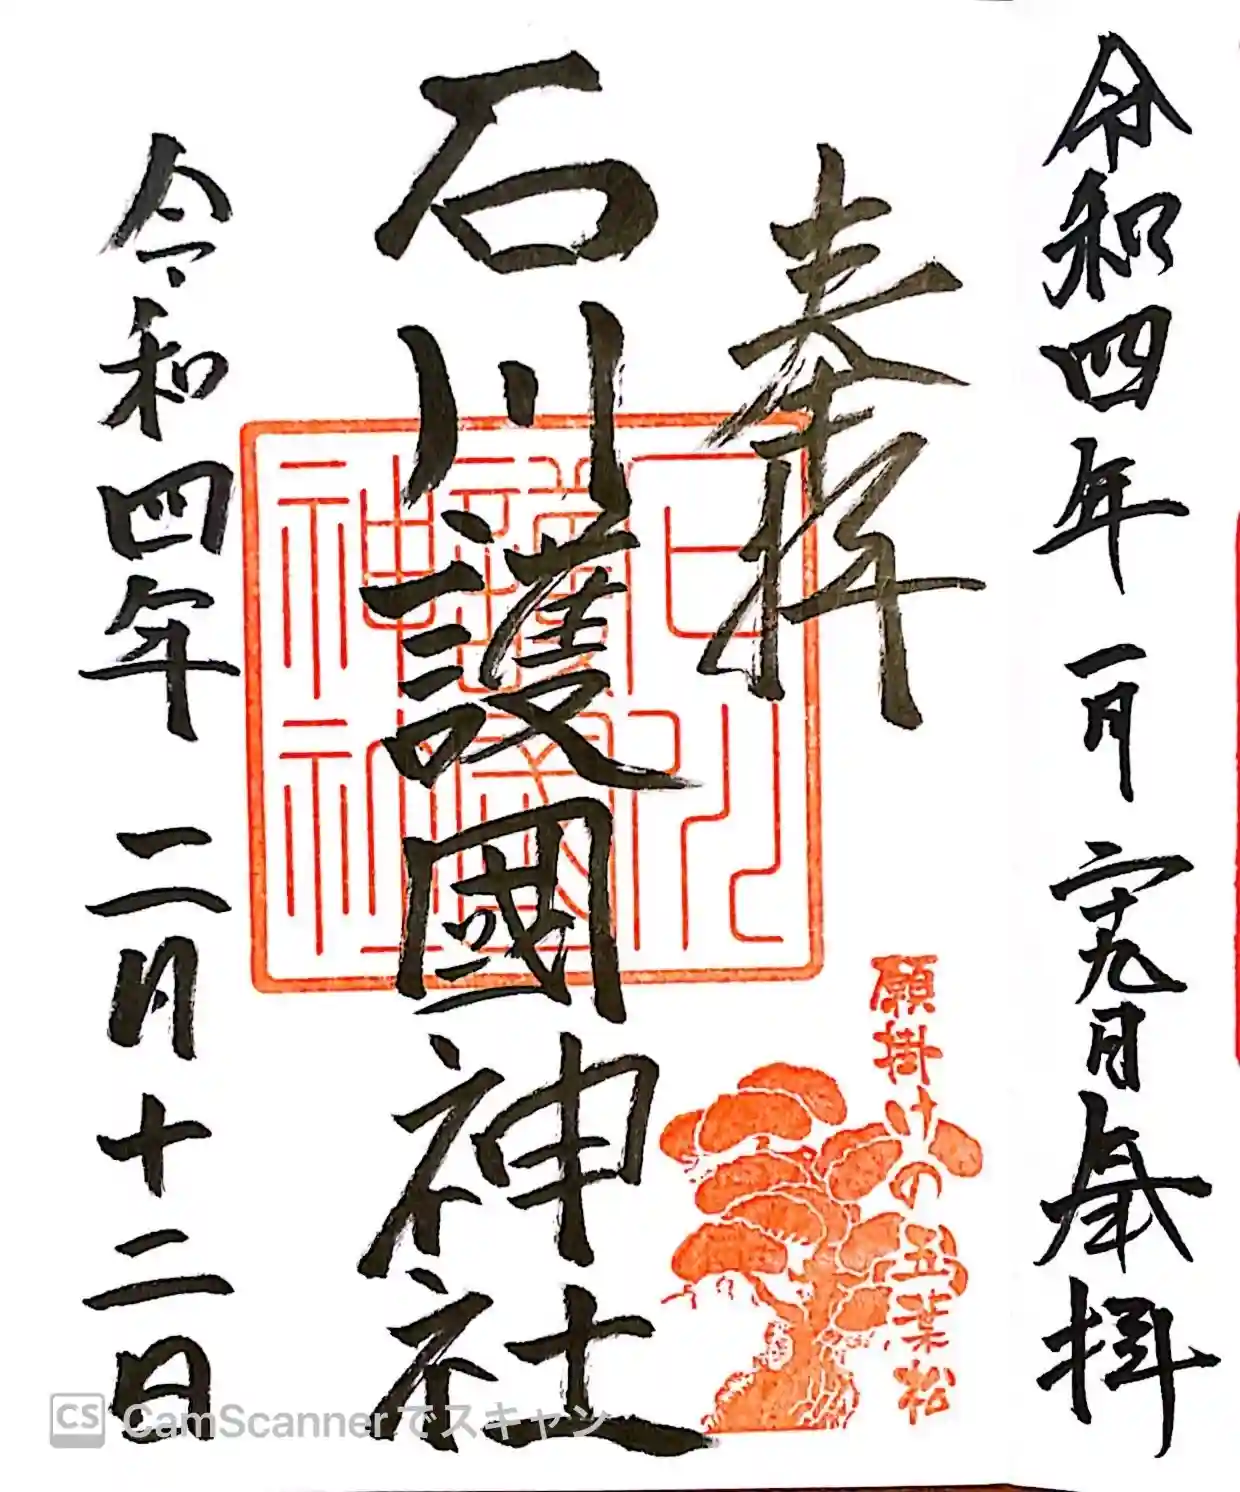 令和四年一月二十九日奉拝
奉拝
石川護國神社
石川護國神社
願掛けの五葉松
令和四年二月十二日
CS CamScannerでスキャン